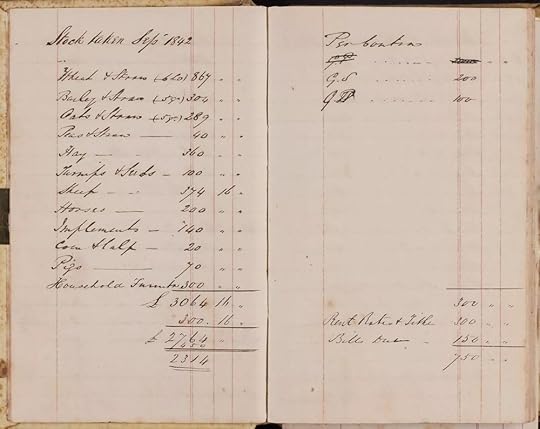 Stock taken Sep 1842
Wheat & Straw (-620) 867 " "
Barley & Straw (-50-) 304 " "
Oats & Straw (-50-) 289 " "
Peas & Straw — 40 " "
Hay — — 360 " "
Turnips & Seeds - 100 " "
Sheep - - 374 16 "
Horses — 200 " "
Implements - 140 " "
Cow & Calf - 20 " "
Pigs — 70 " "
Household Furnitr 300 " "
£ 3064 16 "
300. 16 "
£ 2764 " "
2314
Per Contra
G.S 200
100
300 " "
Rent Rates & Tithe 300 " "
Bills Due " 150 " "
750 " "